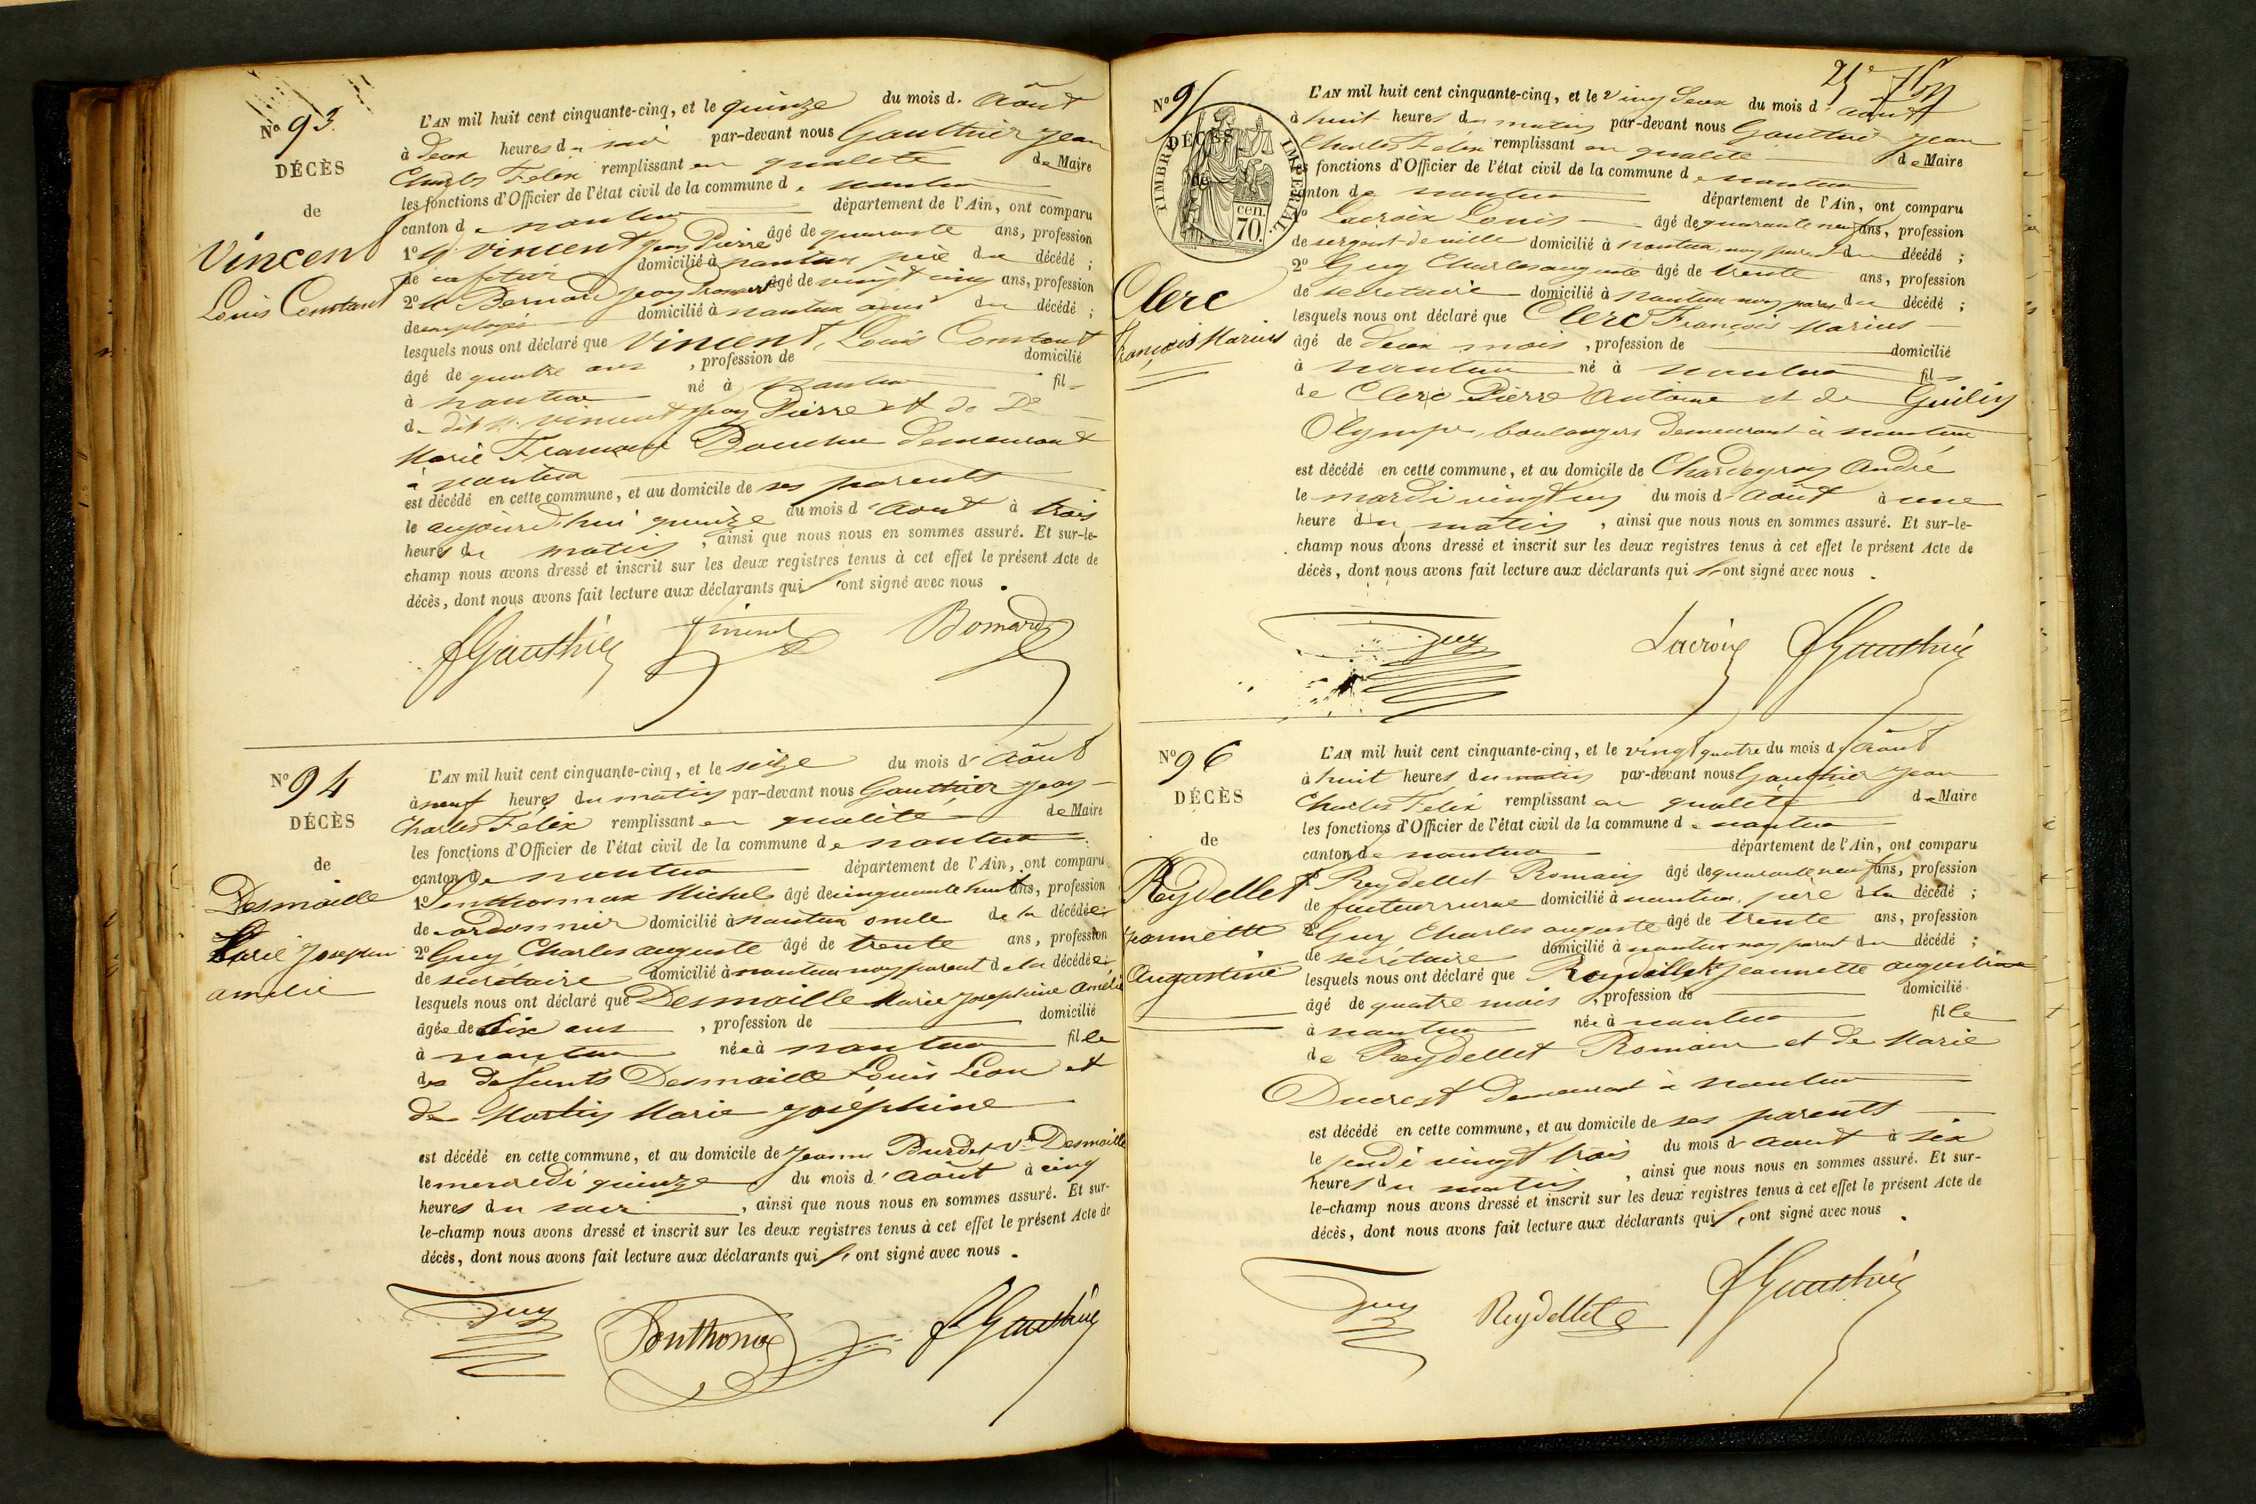 N° 93
DÉCÈS
de
Vincent
Louis Constant
L'AN mil huit cent cinquante-cinq, et le quinze du mois d. Août
à deux heures du soir par-devant nous Gauthier Jean
Charles Félix remplissant en qualité de Maire
les fonctions d'Officier de l'état civil de la commune de nantua
canton de nantua département de l'Ain, ont comparu
1° M Vincent Jean Pierre âgé de quarante ans, profession
de cafetier domicilié à nantua père du décédé ;
2° M Jean âgé de vingt cinq ans, profession
d'employé domicilié à nantua ami du décédé ;
lesquels nous ont déclaré que Vincent, Louis Constant
âgé de quatre ans , profession de domicilié
à nantua né à nantua fils
du dit M. Vincent Jean Pierre et de De
Marie demeurant
à nantua
est décédé en cette commune, et au domicile de ses parents
le aujourd'hui quinze du mois d'Aout à trois
heures du matin , ainsi que nous nous en sommes assuré. Et sur-le-
champ nous avons dressé et inscrit sur les deux registres tenus à cet effet le présent Acte de
décès, dont nous avons fait lecture aux déclarants qui l'ont signé avec nous .
fGauthier Vincent
N° 94
DÉCÈS
de
Desmaille
Marie Josephine
amélie
L'AN mil huit cent cinquante-cinq, et le seize du mois d'Août
à neuf heures du matin par-devant nous Gauthier Jean
Charles Félix remplissant en qualité de Maire
les fonctions d'Officier de l'état civil de la commune de nantua
canton de nantua département de l'Ain, ont comparu
1° Ponthonnax Michel âgé de cinquante huit ans, profession
de cordonnier domicilié à nantua oncle de la décédée ;
2° Guy Charles auguste âgé de trente ans, profession
de secretaire domicilié à nantua non parent de la décédée ;
lesquels nous ont déclaré que Desmaille Marie Josephine Amélie
âgée de six ans , profession de domicilié
à nantua née à nantua fille
des defunts Desmaille Louis Léon et
de Martin Marie Joséphine
est décédé en cette commune, et au domicile de Jeanne Burdet Ve Desmaille
le mercredi quinze du mois d'Août à cinq
heures du soir , ainsi que nous nous en sommes assuré. Et sur-
le-champ nous avons dressé et inscrit sur les deux registres tenus à cet effet le présent Acte de
décès, dont nous avons fait lecture aux déclarants qui l'ont signé avec nous .
Guy Ponthonax fGauthier
N° 95
DÉCÈS
de
TIMBRE IMPÉRIAL
70 cen.
Clerc
François Marius
L'AN mil huit cent cinquante-cinq, et le vingt deux du mois d'août
à huit heures du matin par-devant nous Gauthier Jean
Charles Félix remplissant en qualité de Maire
les fonctions d'Officier de l'état civil de la commune de nantua
canton de nantua département de l'Ain, ont comparu
1° Lacroix Louis âgé de quarante neuf ans, profession
de sergent de ville domicilié à nantua non parent du décédé ;
2° Guy Charles auguste âgé de trente ans, profession
de secretaire domicilié à nantua non parent du décédé ;
lesquels nous ont déclaré que Clerc François Marius
âgé de deux mois , profession de domicilié
à nantua né à nantua fils
de Clerc Pierre Antoine et de
Olympe, boulangers demeurant à nantua
est décédé en cette commune, et au domicile de André
le mardi vingt un du mois d'août à une
heure du matin , ainsi que nous nous en sommes assuré. Et sur-le-
champ nous avons dressé et inscrit sur les deux registres tenus à cet effet le présent Acte de
décès, dont nous avons fait lecture aux déclarants qui l'ont signé avec nous .
Guy Lacroix fGauthier
N° 96
DÉCÈS
de
Reydellet
Jeannette
Augustine
L'AN mil huit cent cinquante-cinq, et le vingt quatre du mois d'Août
à huit heures du matin par-devant nous Gauthier Jean
Charles Félix remplissant en qualité de Maire
les fonctions d'Officier de l'état civil de la commune de nantua
canton de nantua département de l'Ain, ont comparu
1° Reydellet Romain âgé de quarante neuf ans, profession
de facteur rural domicilié à nantua, père de la décédé ;
2° Guy Charles auguste âgé de trente ans, profession
de secrétaire domicilié à nantua non parent du décédé ;
lesquels nous ont déclaré que Reydellet Jeannette augustine
âgé de quatre mois , profession de domicilié
à nantua née à nantua fille
de Reydellet Romain et de Marie
Ducrest demeurant à nantua
est décédé en cette commune, et au domicile de ses parents
le jeudi vingt trois du mois d'aout à six
heures du matin , ainsi que nous nous en sommes assuré. Et sur-
le-champ nous avons dressé et inscrit sur les deux registres tenus à cet effet le présent Acte de
décès, dont nous avons fait lecture aux déclarants qui l'ont signé avec nous .
Guy Reydellet fGauthier